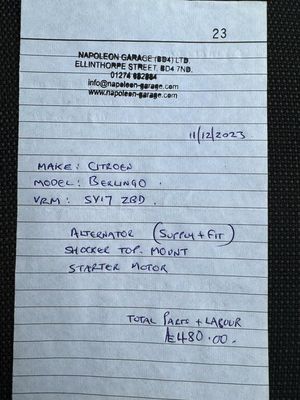 23
NAPOLEON GARAGE (BD4) LTD.
ELLINTHORPE STREET, BD4 7ND.
01274 682984
info@napoleon-garage.com
www.napoleon-garage.com
11/12/2023
MAKE: CITROEN
MODEL: BERLINGO.
VRM: SY17 ZBD.
ALTERNATOR (SUPPLY + FIT)
SHOCKER TOP. MOUNT
STARTER MOTOR
TOTAL PARTS + LABOUR
£480.00.